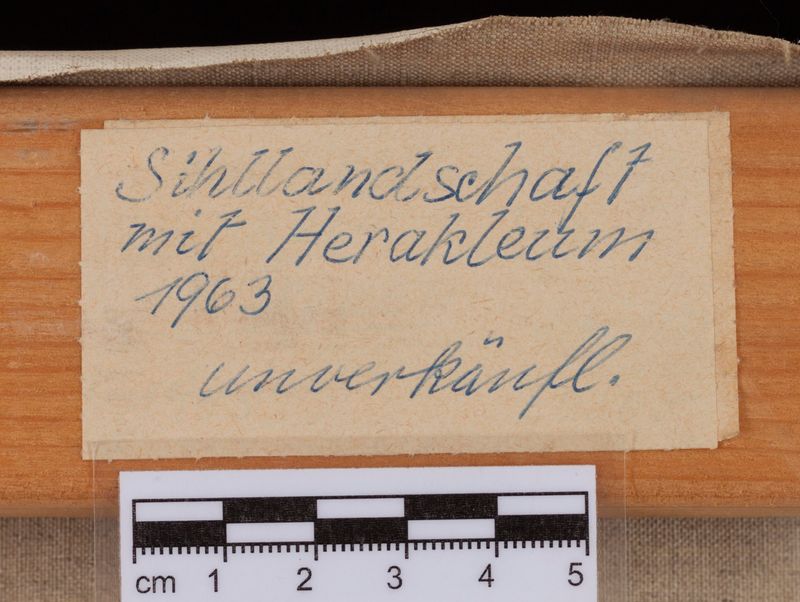 Sihllandschaft
mit Herakleum
1963
unverkäufl.
cm 1 2 3 4 5